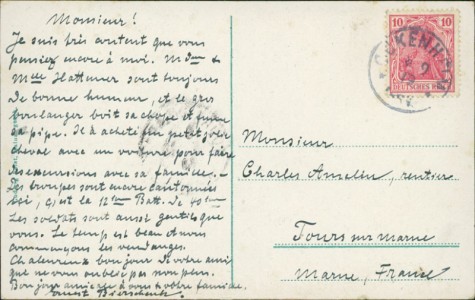 Monsieur!
Je suis très content que vous
pensiez encore à moi. Mdme &
Melle Hattemer sont toujours
de bonne humeur, et le gros
boulanger boit sa chope et fume
sa pipe. Il a acheté un petit joli
cheval avec un voiture pour faire
des excursions avec sa famille. —
Les troupes sont encore cantonnées
ici, c'est la 12te Batt. de
Les soldats sont aussi gentils que
vous. Le temps est beau et nous
commençons les vendanges.
Chaleureux bonjour de votre ami
que ne vous oublie pas non plus.
Bonjour amicale à vous & votre famille.
Ernst
10 10
DEUTSCHES REICH
Monsieur
Charles Amelin, rentier
Tours sur Marne
Marne, France